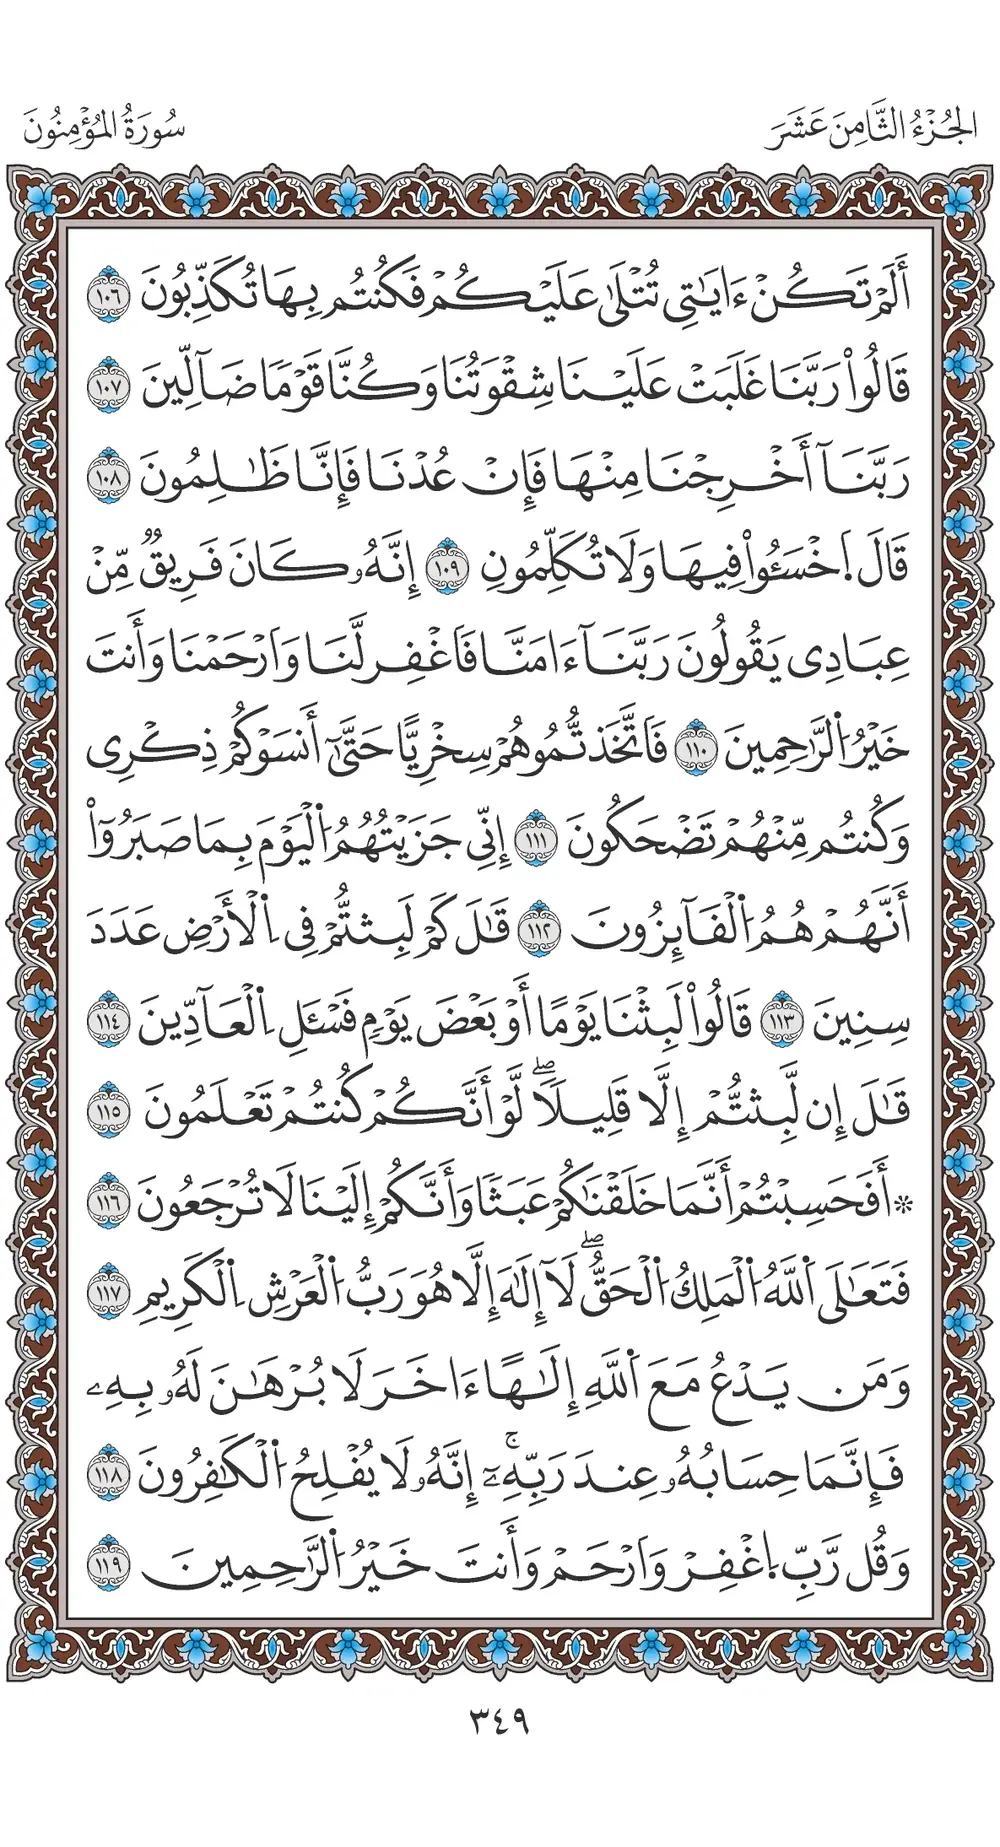 الجُزْءُ الثَّامِنَ عَشَرَ
سُورَةُ المُؤْمِنُونَ
أَلَمْ تَكُنْ ءَايَٰتِى تُتْلَىٰ عَلَيْكُمْ فَكُنتُم بِهَا تُكَذِّبُونَ ١٠٦
قَالُوا۟ رَبَّنَا غَلَبَتْ عَلَيْنَا شِقْوَتُنَا وَكُنَّا قَوْمًا ضَآلِّينَ ١٠٧
رَبَّنَآ أَخْرِجْنَا مِنْهَا فَإِنْ عُدْنَا فَإِنَّا ظَٰلِمُونَ ١٠٨
قَالَ اَ۪خْسَـُٔوا۟ فِيهَا وَلَا تُكَلِّمُونِ ١٠٩ إِنَّهُۥ كَانَ فَرِيقٌ مِّنْ
عِبَادِى يَقُولُونَ رَبَّنَآ ءَامَنَّا فَاَغْفِر لَّنَا وَاَرْحَمْنَا وَأَنتَ
خَيْرُ اُ۬لرَّٰحِمِينَ ١١٠ فَاَتَّخَذتُّمُوهُمْ سِخْرِيًّا حَتَّىٰٓ أَنسَوْكُمْ ذِكْرِى
وَكُنتُم مِّنْهُمْ تَضْحَكُونَ ١١١ إِنِّى جَزَيْتُهُمُ اُ۬لْيَوْمَ بِمَا صَبَرُوٓا۟
أَنَّهُمْ هُمُ اُ۬لْفَآئِزُونَ ١١٢ قَٰلَ كَمْ لَبِثتُّمْ فِى اِ۬لْأَرْضِ عَدَدَ
سِنِينَ ١١٣ قَالُوا۟ لَبِثْنَا يَوْمًا أَوْ بَعْضَ يَوْمٍ فَسْـَٔلِ اِ۬لْعَآدِّينَ ١١٤
قَٰلَ إِن لَّبِثتُّمْ إِلَّا قَلِيلًا ۖ لَّوْ أَنَّكُمْ كُنتُمْ تَعْلَمُونَ ١١٥
* أَفَحَسِبْتُمْ أَنَّمَا خَلَقْنَٰكُمْ عَبَثًا وَأَنَّكُمْ إِلَيْنَا لَا تُرْجَعُونَ ١١٦
فَتَعَٰلَى اَ۬للَّهُ اُ۬لْمَلِكُ اُ۬لْحَقُّ ۖ لَآ إِلَٰهَ إِلَّا هُوَ رَبُّ اُ۬لْعَرْشِ اِ۬لْكَرِيمِ ١١٧
وَمَن يَدْعُ مَعَ اَ۬للَّهِ إِلَٰهًا ءَاخَرَ لَا بُرْهَٰنَ لَهُۥ بِهِۦ
فَإِنَّمَا حِسَابُهُۥ عِندَ رَبِّهِۦٓ ۚ إِنَّهُۥ لَا يُفْلِحُ اُ۬لْكَٰفِرُونَ ١١٨
وَقُل رَّبِّ اِ۪غْفِرْ وَاَرْحَمْ وَأَنتَ خَيْرُ اُ۬لرَّٰحِمِينَ ١١٩
٣٤٩